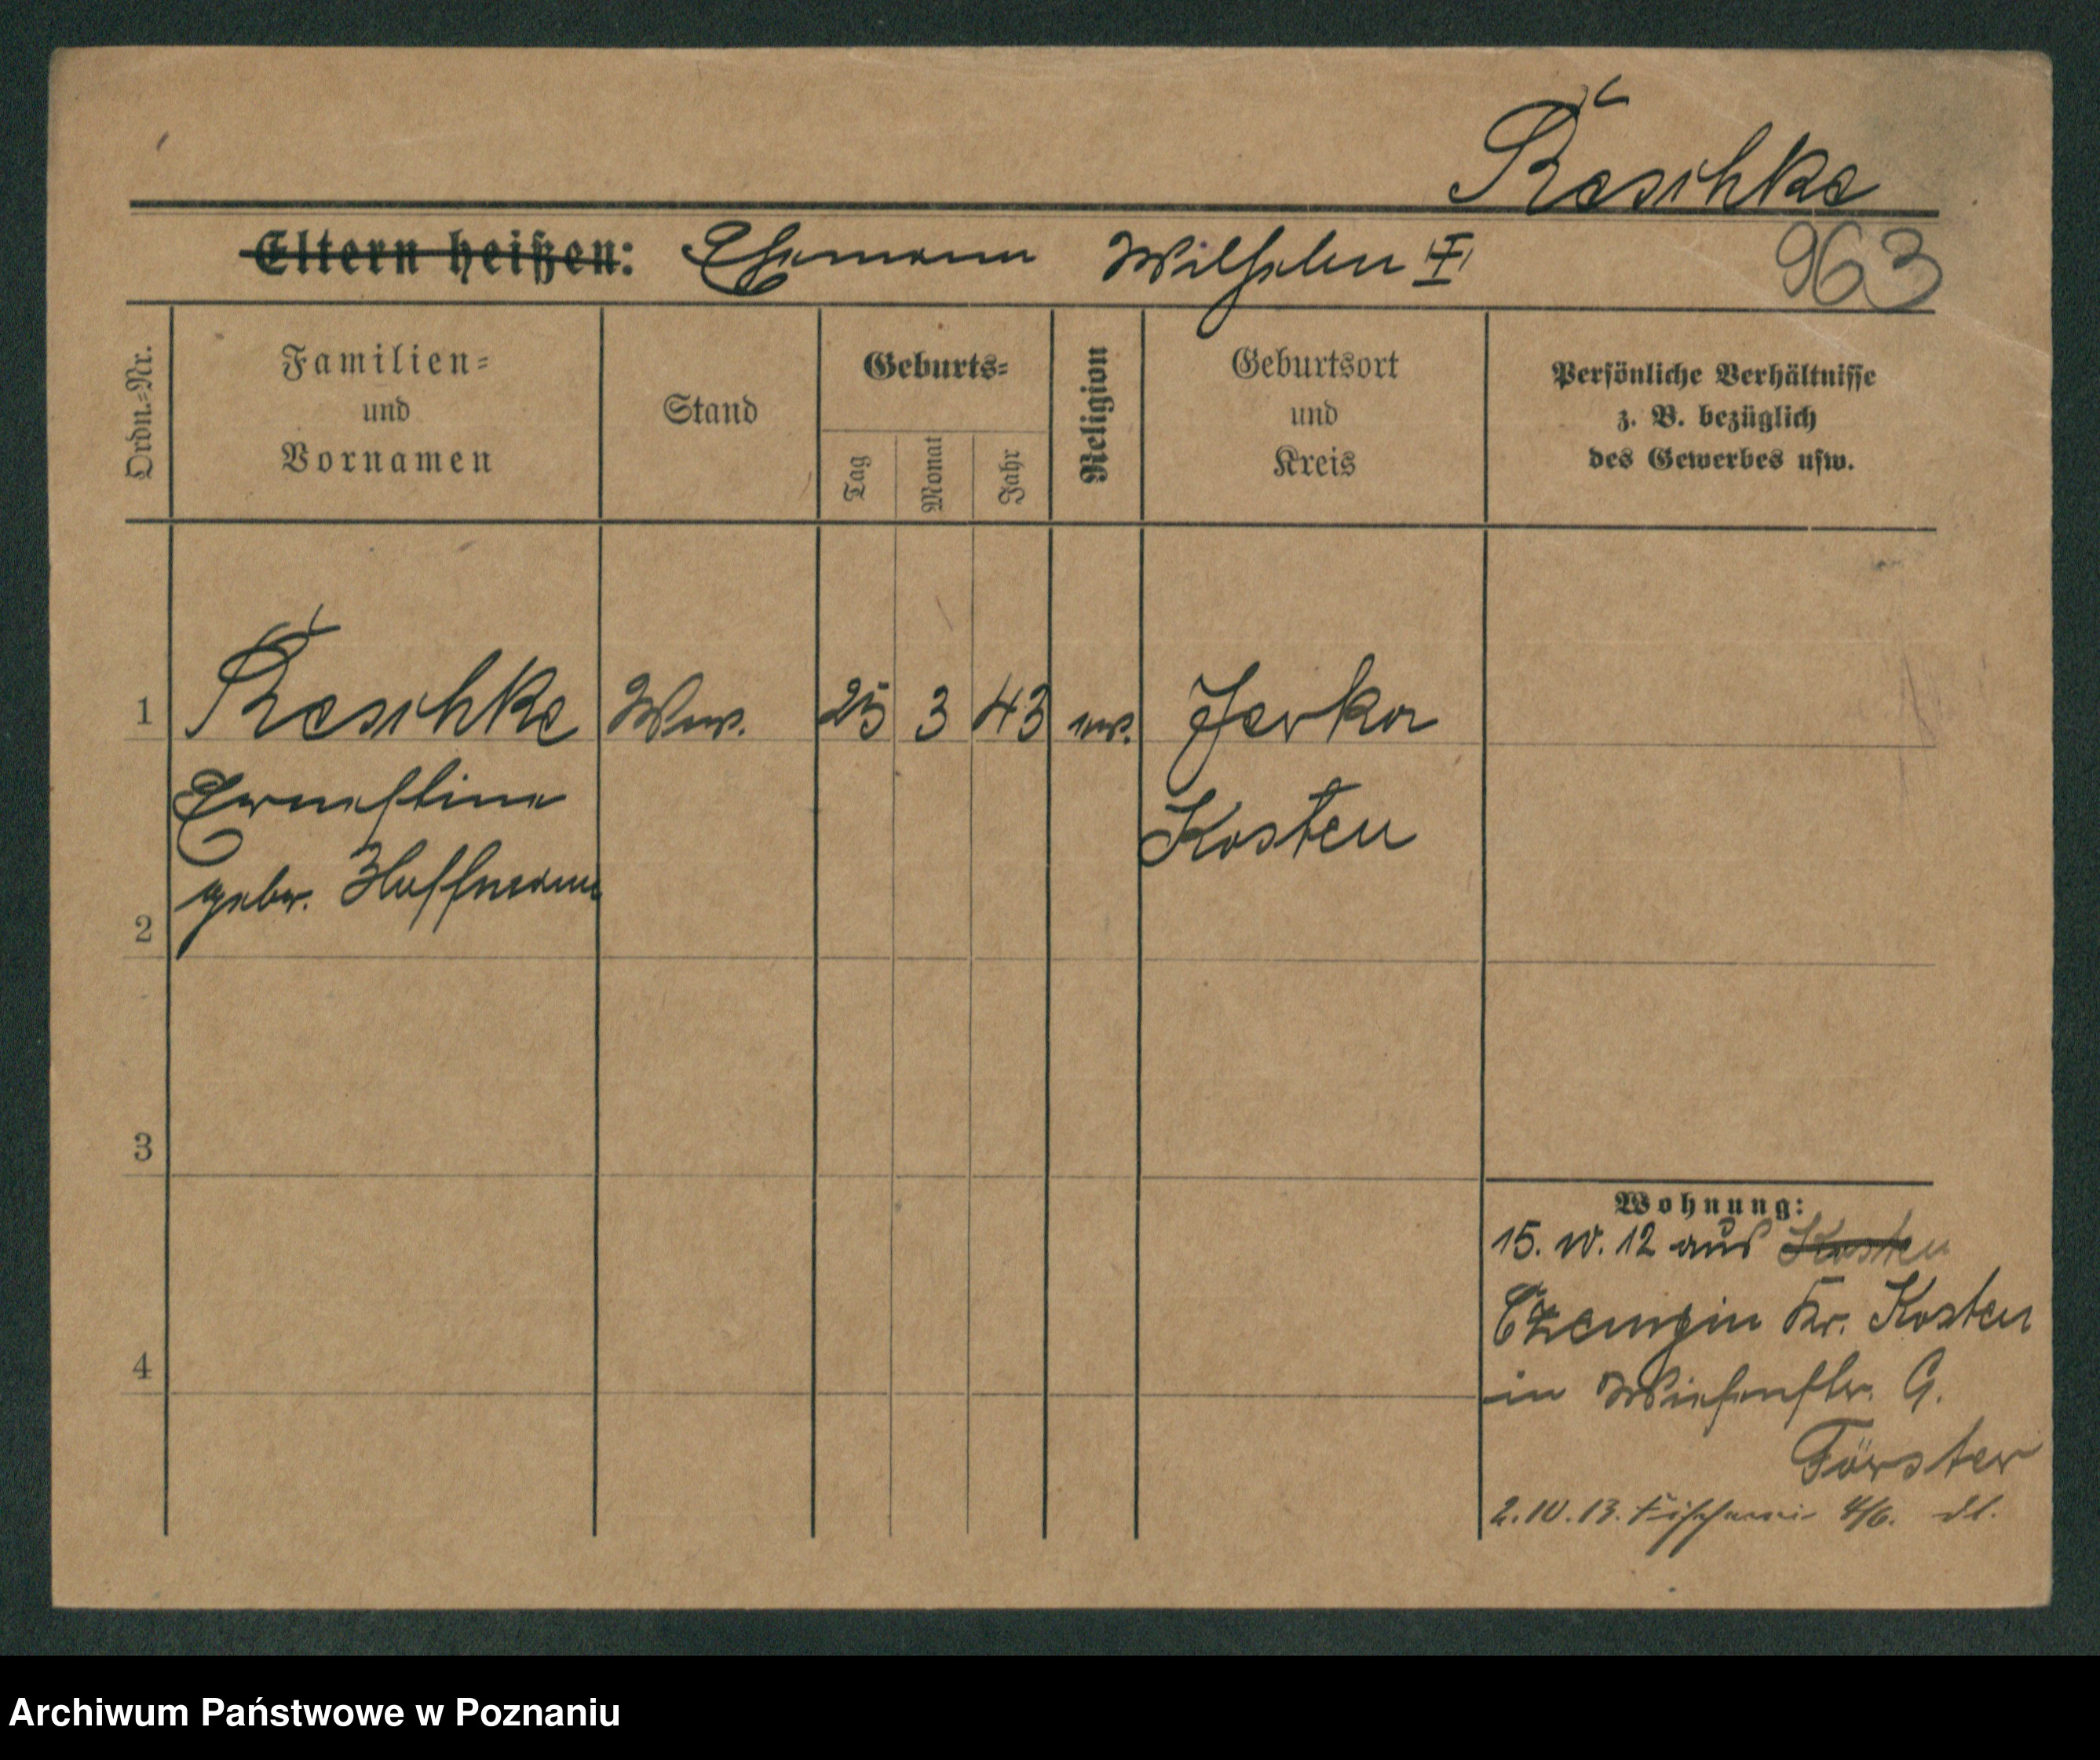 Reschke
Eltern heißen: Ehemann Wilhelm
963
Ordn.-Nr.
Familien-
und
Vornamen
Stand
Geburts-
Tag
Monat
Jahr
Religion
Geburtsort
und
Kreis
Persönliche Verhältnisse
z. B. bezüglich
des Gewerbes usw.
1 Reschke Wwe. 25 3 43 ev. Jerka
Ernestine Kosten
gebr. Hoffmann
2
3
4
Wohnung:
15. IV. 12 aus Kosten
Czempin Kr. Kosten
in Wiesenstr. 9.
Förster
2. IV. 13. Fischerei 4/6.
Archiwum Państwowe w Poznaniu